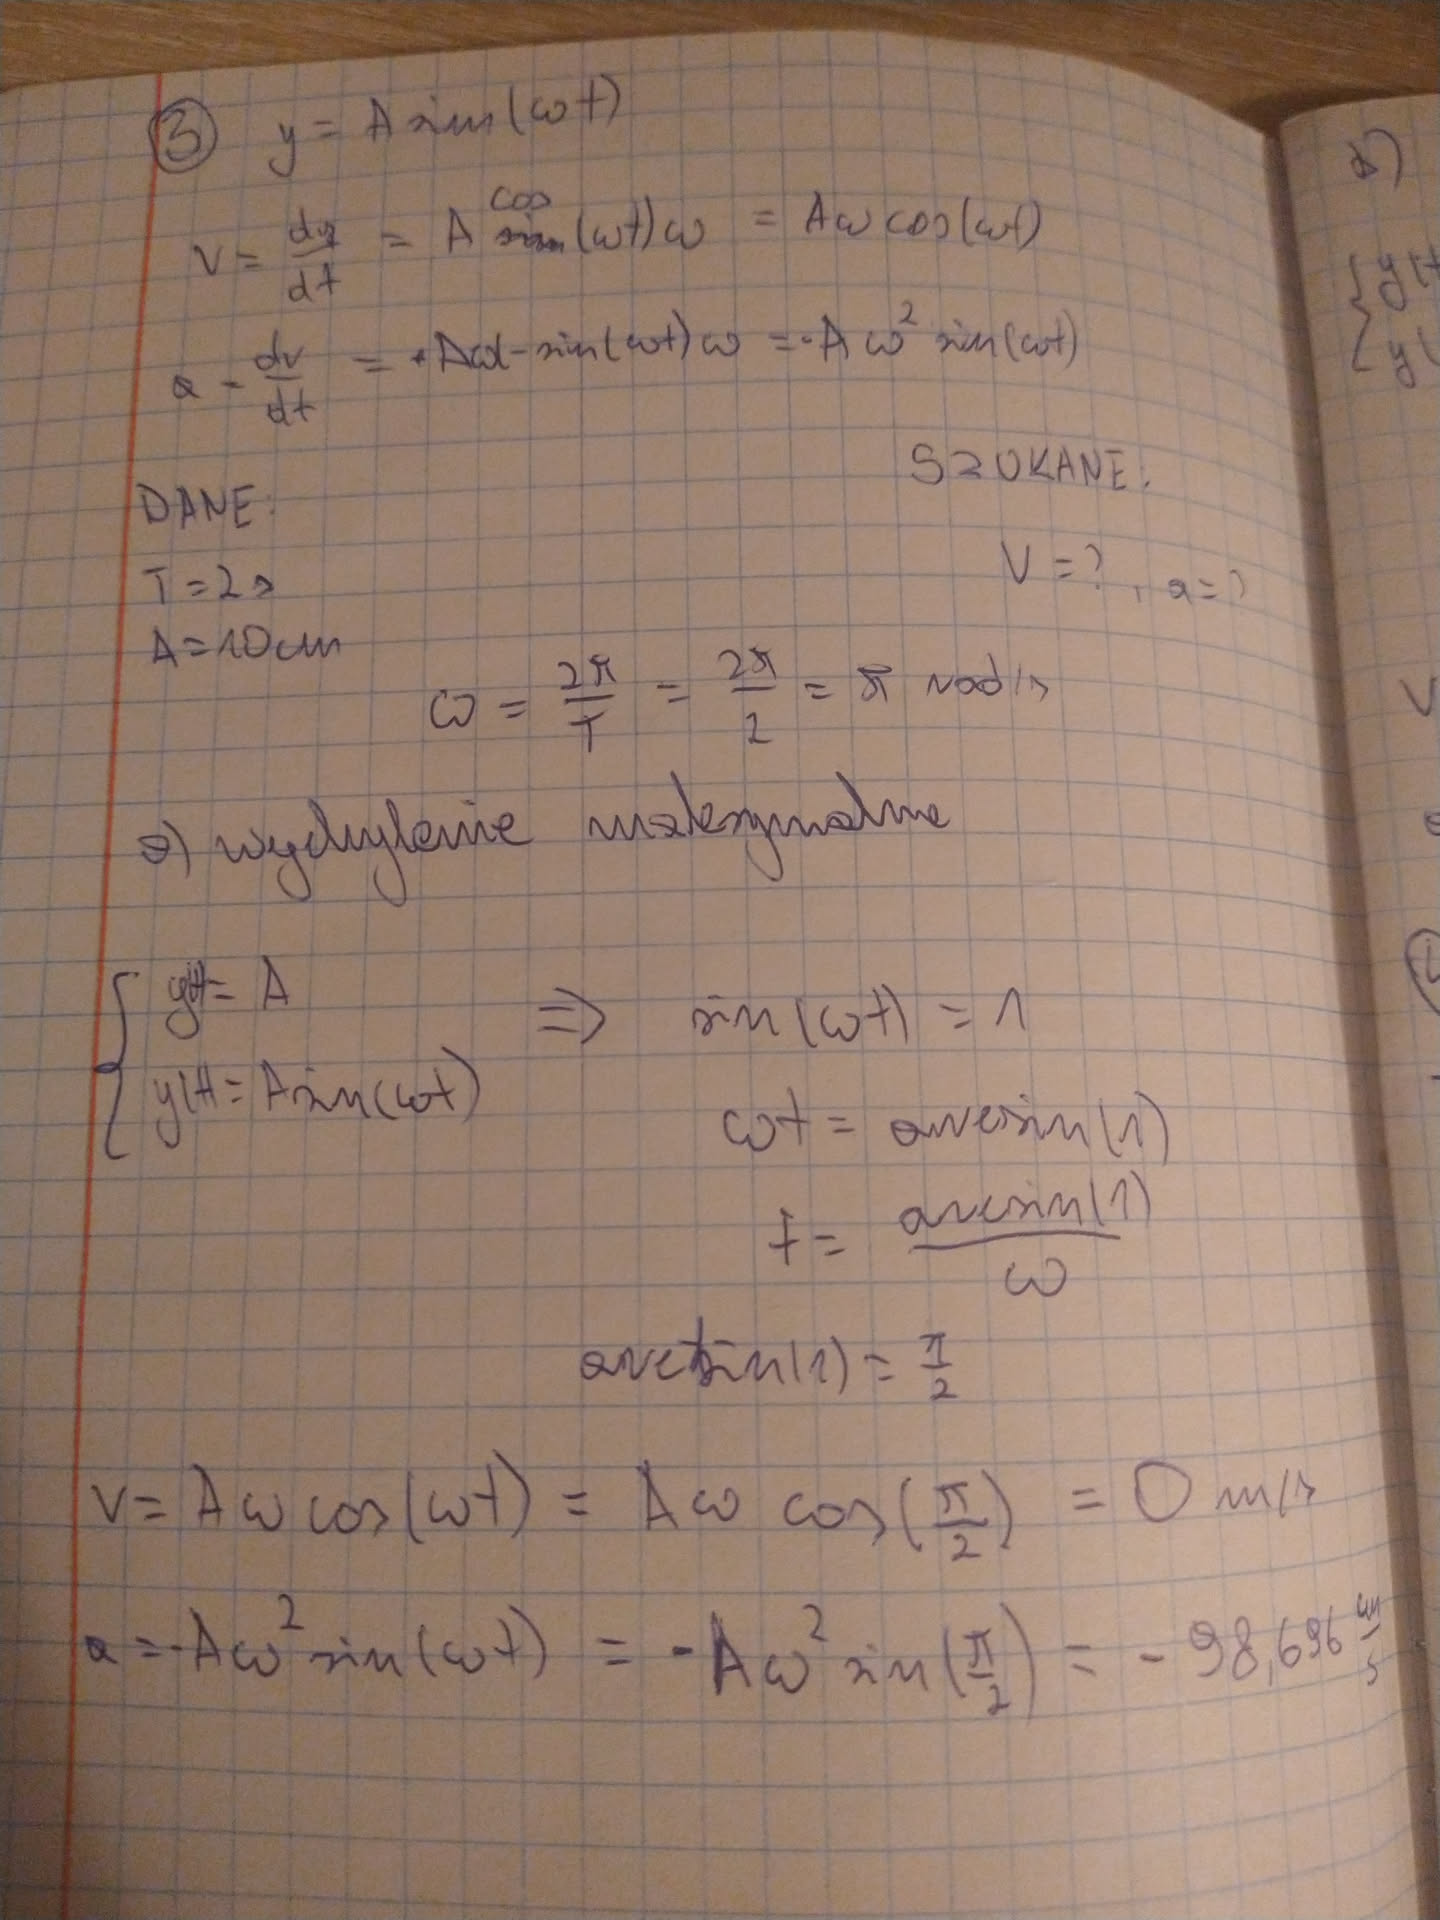 ③ y = A sin(ωt)
v = dy/dt = A cos (ωt) ω = Aω cos(ωt)
a = dv/dt = Aω(-sin(ωt)ω = -Aω² sin(ωt)
SZUKANE:
DANE:
V = ? , a = ?
T = 2s
A = 10cm
ω = 2π/T = 2π/2 = π rad/s
a) wychylenie maksymalne
{ y(t) = A ⇒ sin(ωt) = 1
y(t) = A sin(ωt)
ωt = arcsin(1)
t = arcsin(1)/ω
arcsin(1) = π/2
V = Aω cos(ωt) = Aω cos(π/2) = 0 m/s
a = -Aω² sin(ωt) = -Aω² sin(π/2) = -98,696 cm/s
b)
{ y(t
y(
V
a